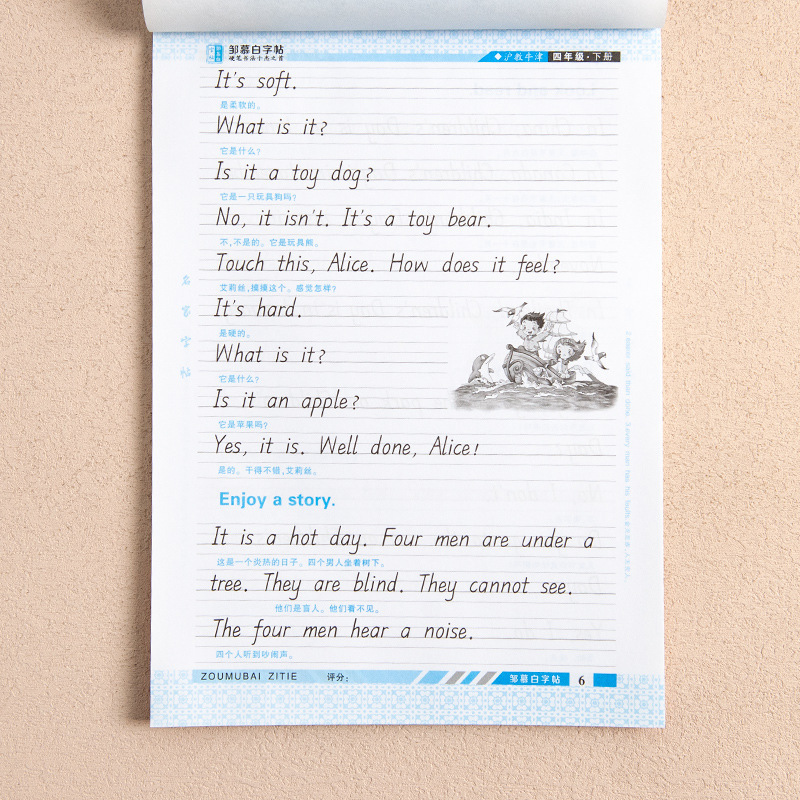 邹慕白字帖
硬笔书法十杰之首
◆沪教牛津 四年级·下册
It's soft.
是柔软的。
What is it?
它是什么?
Is it a toy dog?
它是一只玩具狗吗?
No, it isn't. It's a toy bear.
不,不是的。它是玩具熊。
Touch this, Alice. How does it feel?
艾莉丝,摸摸这个。感觉怎样?
It's hard.
是硬的。
What is it?
它是什么?
Is it an apple?
它是苹果吗?
Yes, it is. Well done, Alice!
是的。干得不错,艾莉丝。
Enjoy a story.
It is a hot day. Four men are under a
这是一个炎热的日子。四个男人坐着树下。
tree. They are blind. They cannot see.
他们是盲人。他们看不见。
The four men hear a noise.
四个人听到吵闹声。
名家字帖
ZOUMUBAI ZITIE 评分:
邹慕白字帖 6